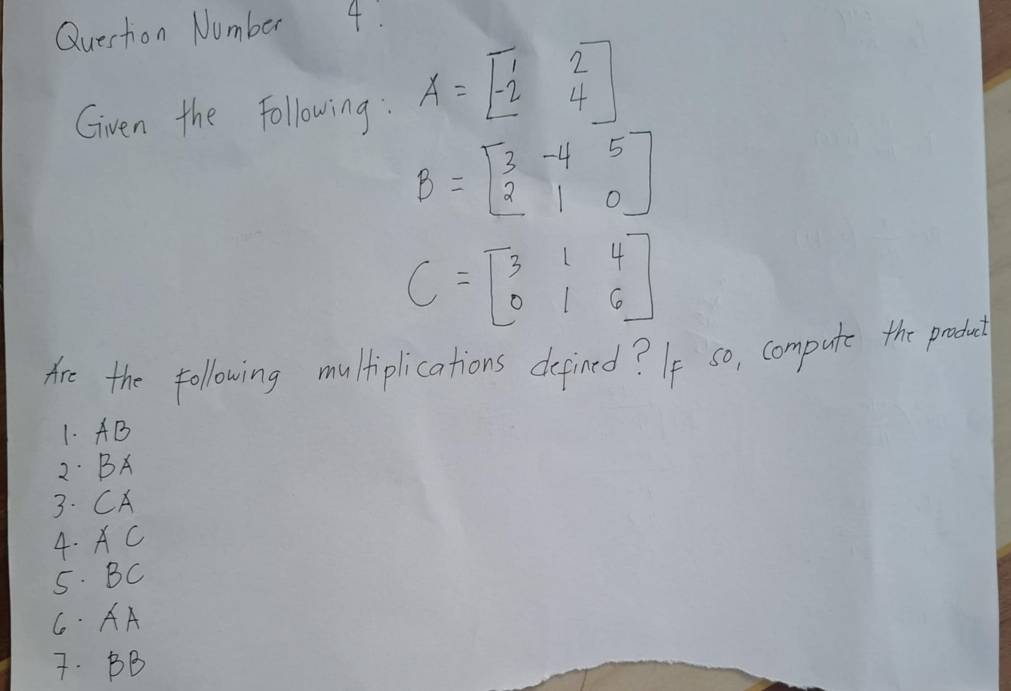 Question Number 4.
Given the Following: A = [1 2
-2 4]
B = [3 -4 5
2 1 0]
C = [3 1 4
0 1 6]
Are the following multiplications defined? If so, compute the product
1. AB
2. BA
3. CA
4. AC
5. BC
6. AA
7. BB